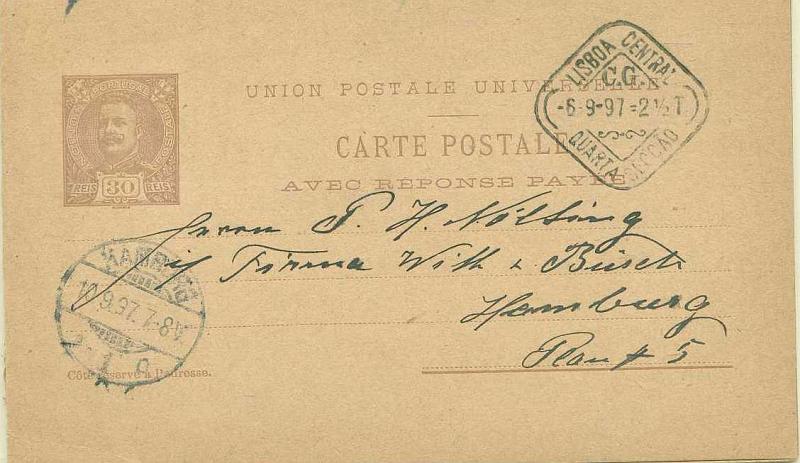 LISBOA CENTRAL
C.G.
-6-9-97=2½T
QUARTA SECÇÃO
PORTUGAL
REIS 30 REIS
UNION POSTALE UNIVERSELLE
CARTE POSTALE
AVEC RÉPONSE PAYÉE
Herrn P. H. Nölting
Firma With & Büsch
Hamburg
Plan # 5
HAMBURG
7-8
Côté réservé à l'adresse.